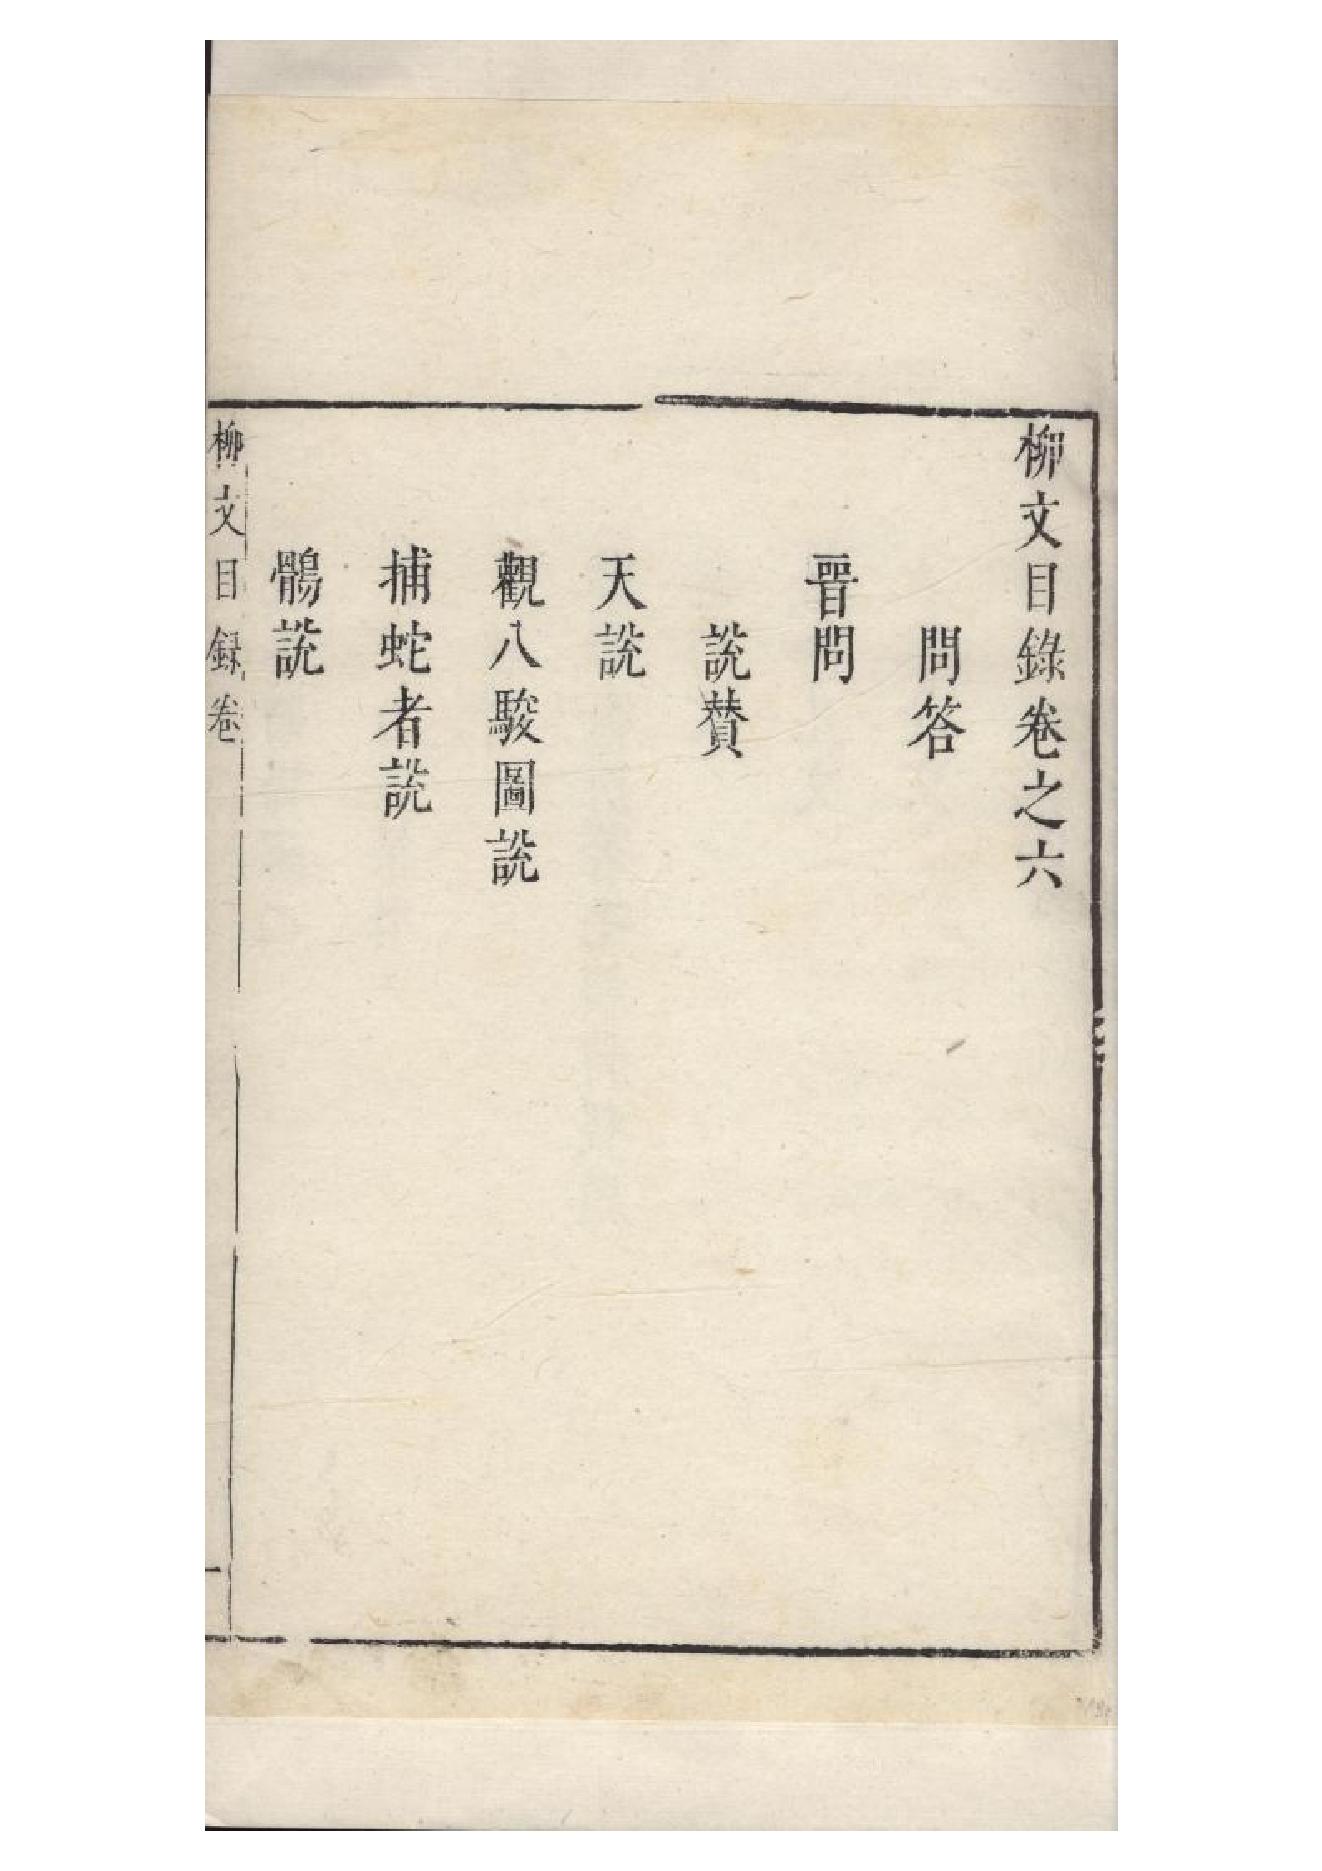 柳文目錄卷之六
問答
晋問
説賛
天説
觀八駿圖説
捕蛇者説
鶻説
柳文目録卷
一